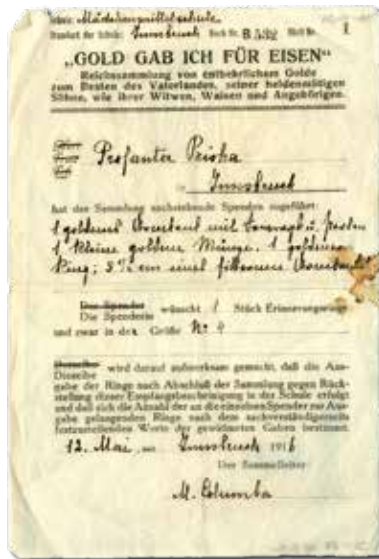 Schule: Mädchenmittelschule
Standort der Schule: Innsbruck Buch Nr. Blatt Nr. 1
„GOLD GAB ICH FÜR EISEN"
Reichssammlung von entbehrlichem Golde
zum Besten des Vaterlandes, seiner heldenmütigen
Söhne, wie ihrer Witwen, Waisen und Angehörigen.
Profanter Priska
in Innsbruck
hat der Sammlung nachstehende Spenden zugeführt:
1 goldenes Armband mit u. Perlen
1 kleine goldene Münze, 1 goldenen
Ring; 3 ½ cm eines silbernen Armbandes
Der Spender
Die Spenderin wünscht 1 Stück Erinnerungsringe
und zwar in der Größe No 4
Derselbe
Dieselbe wird darauf aufmerksam gemacht, daß die Aus-
gabe der Ringe nach Abschluß der Sammlung gegen Rück-
stellung dieser Empfangsbescheinigung in der Schule erfolgt
und daß sich die Anzahl der an die einzelnen Spender zur Aus-
gabe gelangenden Ringe nach dem sachverständigerseits
festzustellenden Werte der gewidmeten Gaben bestimmt.
12. Mai Innsbruck 1916
Der Sammelleiter
M. Columba